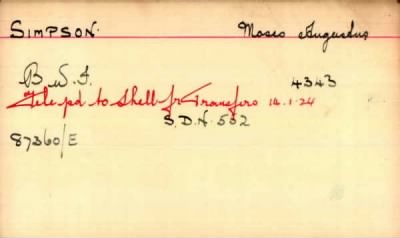 SIMPSON. Moses Augustus
B.W.I. 4343
File pd to Shell fr Transfers 14.1.24
S.D.N. 552
87360/E